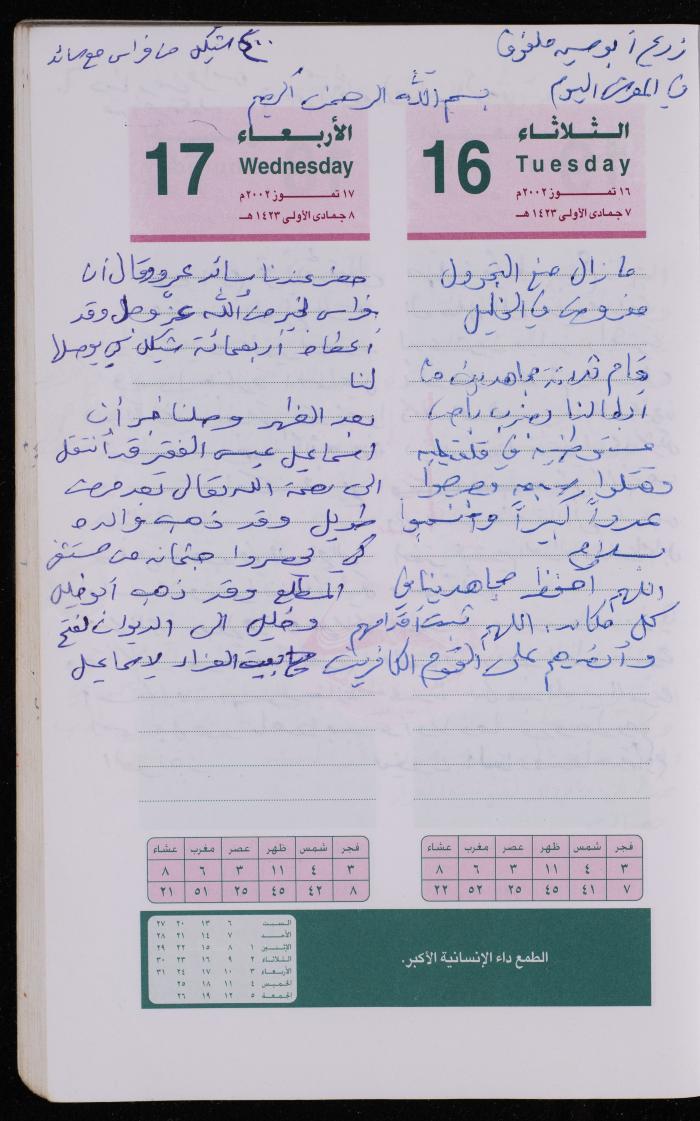 زرع أبو حسين ملفوف
في المعرش اليوم
٤٠٠ شيكل من فراس مع سائد
بسم الله الرحمن الرحيم
الثلاثاء
16
Tuesday
١٦ تمـوز ٢٠٠٢م
٧ جمادى الأولى ١٤٢٣ هـ
ما زال منع التجول
مفروض في الخليل
قام ثلاثة مجاهدين من
أبطالنا بضرب باص
مستوطنين في قلقيلية
وقتلوا وجرحوا
عدداً كبيراً وانسحبوا
بسلام
اللهم احفظ مجاهدينا في
كل مكان، اللهم ثبت أقدامهم
وانصرهم على القوم الكافرين
الأربعاء
17
Wednesday
١٧ تمـوز ٢٠٠٢م
٨ جمادى الأولى ١٤٢٣ هـ
حضر عندنا سائد عمرو وقال أن
فراس بخير من الله عز وجل وقد
أعطاه أربعمائة شيكل كي يوصلها
لنا
بعد الظهر وصلنا خبر أن
اسماعيل عيسى الفقير قد انتقل
الى رحمة الله تعالى بعد مرض
طويل وقد ذهب والده
كي يحضروا جثمانه من مستشفى
المطلع وقد ذهب أبو خليل
وخليل الى الديوان لفتح
بيت العزاء لاسماعيل
فجر شمس ظهر عصر مغرب عشاء
٣ ٤ ١١ ٣ ٦ ٨
٧ ٤١ ٤٥ ٢٥ ٥٢ ٢٢
فجر شمس ظهر عصر مغرب عشاء
٣ ٤ ١١ ٣ ٦ ٨
٨ ٤٢ ٤٥ ٢٥ ٥١ ٢١
الطمع داء الإنسانية الأكبر.
السبت ٦ ١٣ ٢٠ ٢٧
الأحد ٧ ١٤ ٢١ ٢٨
الإثنين ١ ٨ ١٥ ٢٢ ٢٩
الثلاثاء ٢ ٩ ١٦ ٢٣ ٣٠
الأربعاء ٣ ١٠ ١٧ ٢٤ ٣١
الخميس ٤ ١١ ١٨ ٢٥
الجمعة ٥ ١٢ ١٩ ٢٦